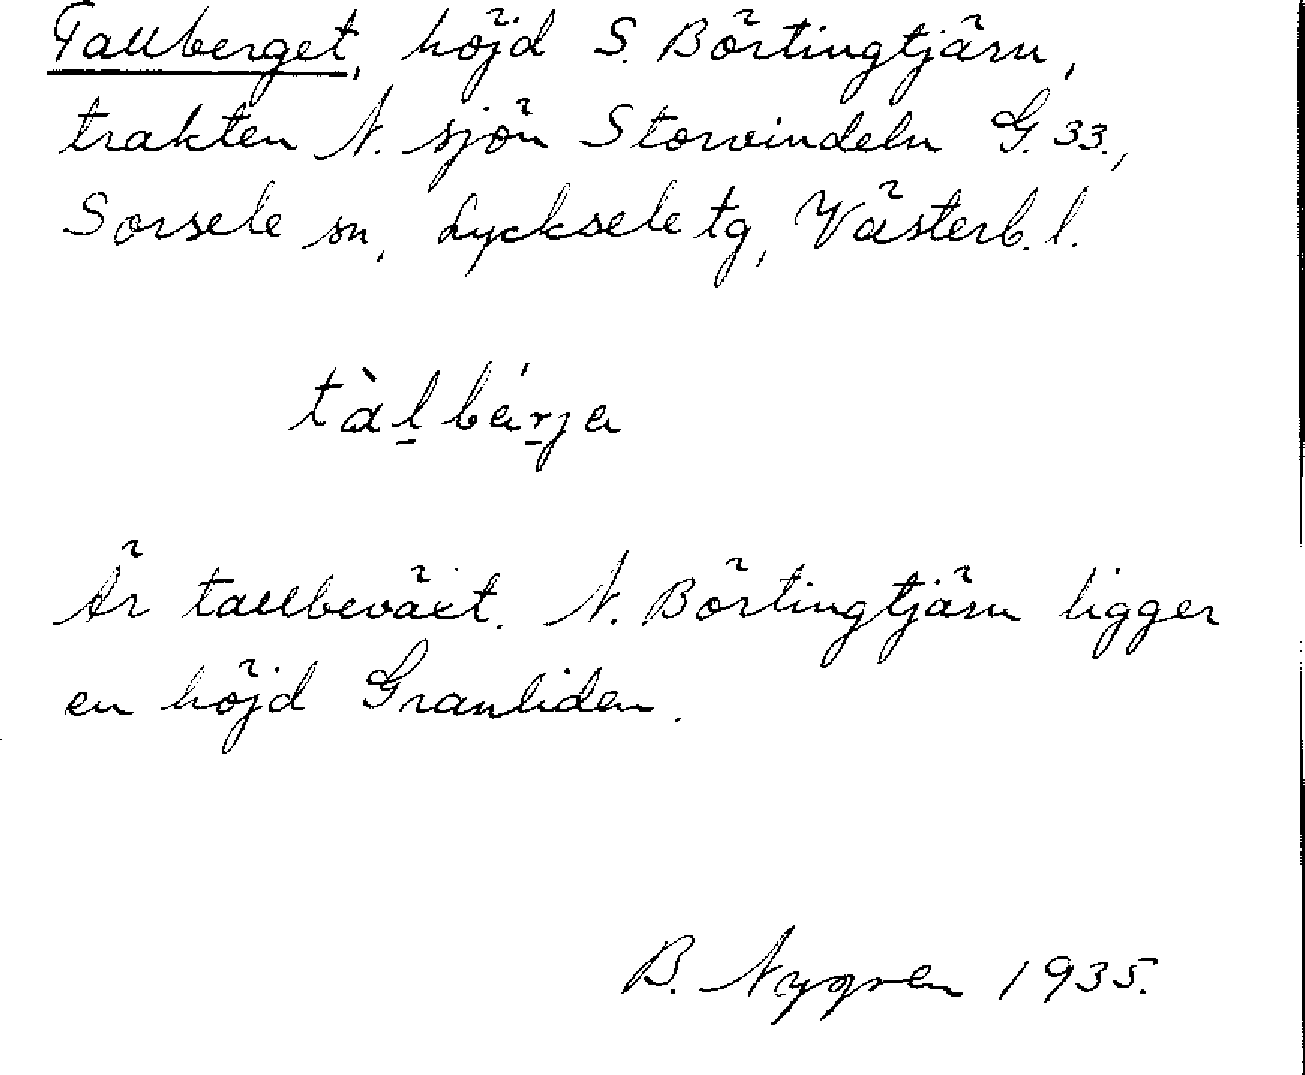 Tallberget, höjd S. Börtingtjärn,
trakten N. sjön Storvindeln G. 33.,
Sorsele sn, Lycksele tg, Västerb. l.
tàl̲bér̲ja
Är tallbeväxt. N. Börtingtjärn ligger
en höjd Granliden.
B. Nygren 1935.